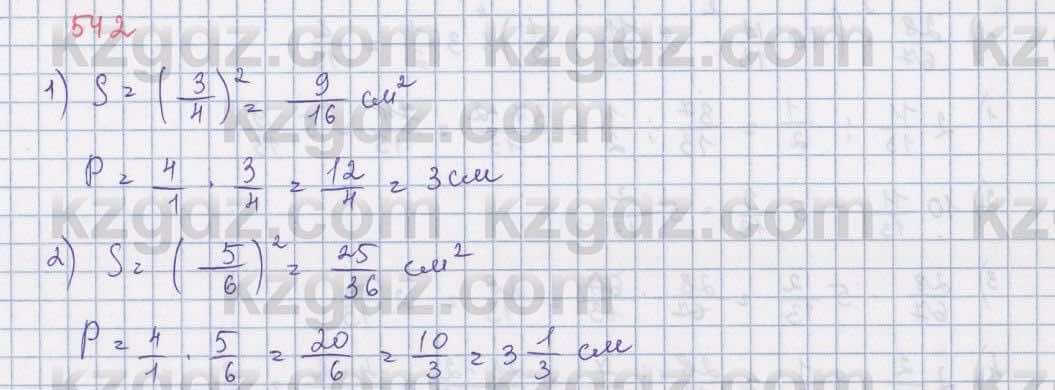 542
1) S = (3/4)² = 9/16 см²
P = 4/1 · 3/4 = 12/4 = 3 см
2) S = (5/6)² = 25/36 см²
P = 4/1 · 5/6 = 20/6 = 10/3 = 3 1/3 см
kzgdz.com kzgdz.com kz
kzgdz.com
kzgdz.com kzgdz.com kz
kzgdz.com
kzgdz.com kzgdz.com kz